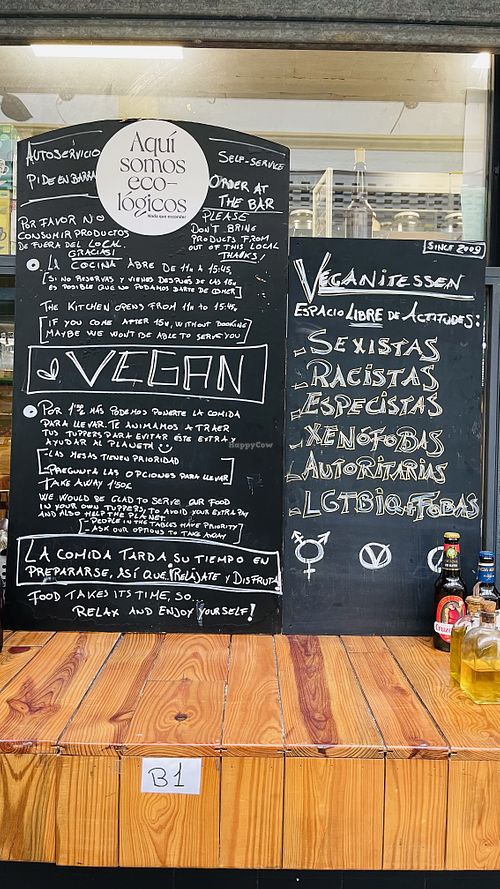 AUTOSERVICIO
PIDE EN BARRA
Aquí
somos
eco-
lógicos
Nada que esconder
SELF-SERVICE
ORDER AT
THE BAR
POR FAVOR NO
CONSUMIR PRODUCTOS
DE FUERA DEL LOCAL
GRACIAS!
PLEASE
DON'T BRING
PRODUCTS FROM
OUT OF THIS LOCAL
THANKS!
LA COCINA ABRE DE 11H A 15:45,
SI NO RESERVAS Y VIENES DESPUÉS DE LAS 15H
ES POSIBLE QUE NO PODAMOS DARTE DE COMER
THE KITCHEN OPENS FROM 11H TO 15:45,
IF YOU COME AFTER 15H, WITHOUT BOOKING
MAYBE WE WON'T BE ABLE TO SERVE YOU
VEGAN
POR 1'50€ MÁS PODEMOS PONERTE LA COMIDA
PARA LLEVAR. TE ANIMAMOS A TRAER
TUS TUPPERS PARA EVITAR ESTE EXTRA Y
AYUDAR AL PLANETA
-LAS MESAS TIENEN PRIORIDAD
-PREGUNTA LAS OPCIONES PARA LLEVAR
TAKE AWAY 1'50€
WE WOULD BE GLAD TO SERVE OUR FOOD
IN YOUR OWN TUPPERS, TO AVOID YOUR EXTRA PAY
AND ALSO HELP THE PLANET.
- PEOPLE IN THE TABLES HAVE PRIORITY
- ASK OUR OPTIONS TO TAKE AWAY
LA COMIDA TARDA SU TIEMPO EN
PREPARARSE, ASÍ QUE.. RELÁJATE Y DISFRUTA
FOOD TAKES ITS TIME, SO...
RELAX AND ENJOY YOURSELF!
SINCE 2009
VEGANITESSEN
ESPACIO LIBRE DE ACTITUDES:
- SEXISTAS
- RACISTAS
- ESPECISTAS
- XENÓFOBAS
- AUTORITARIAS
- LGTBIQ+FOBAS
HappyCow
B1